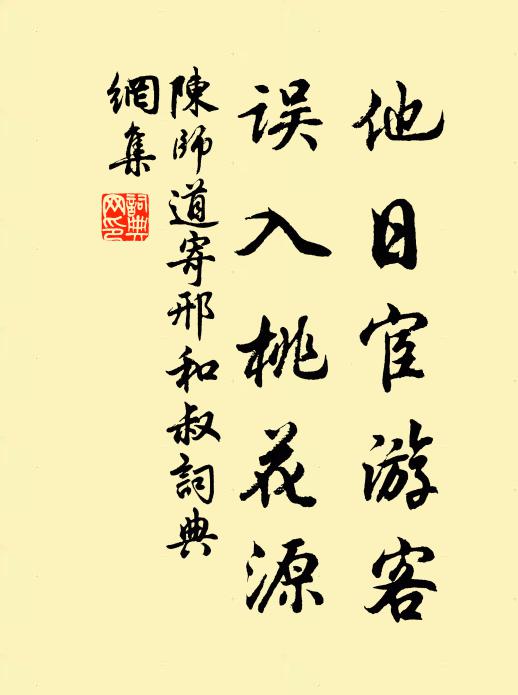 他日宦游客
误入桃花源
陳師道寄邢和叔詞典
網集
詞典网印